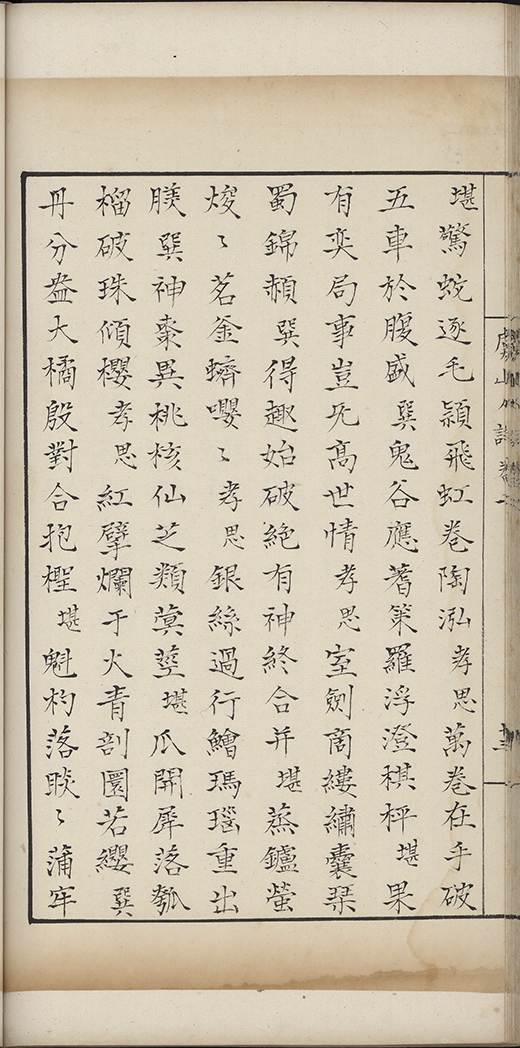 堪驚蛇逐毛穎飛虹卷陶泓孝思萬卷在手破
五車於腹盛巽鬼谷應蓍筞羅浮澄棋枰堪果
有奕局事豈旡高世情孝思室劍商縷繡囊琹
蜀錦赬巽得趣始破絶有神終合并堪蒸鑪螢
焌〻茗釜蠐嚶〻孝思銀絲過行鱠瑪瑙重出
䐑巽神棗異桃核仙芝類蓂莖堪瓜開犀落瓠
榴破珠傾櫻孝思紅擘爛于火青剖圜若纓巽
丹分盎大橘殷對合抱檉堪魁杓落睒〻蒲牢